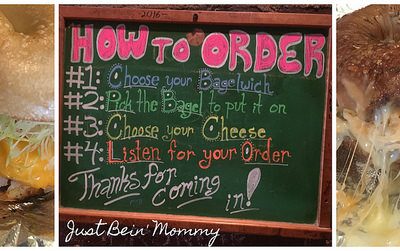 2016
HOW TO ORDER
#1: Choose your Bagelwich
#2: Pick the Bagel to put it on
#3: Choose your Cheese
#4: Listen for your Order
Thanks for
coming
in!
Just Bein' Mommy